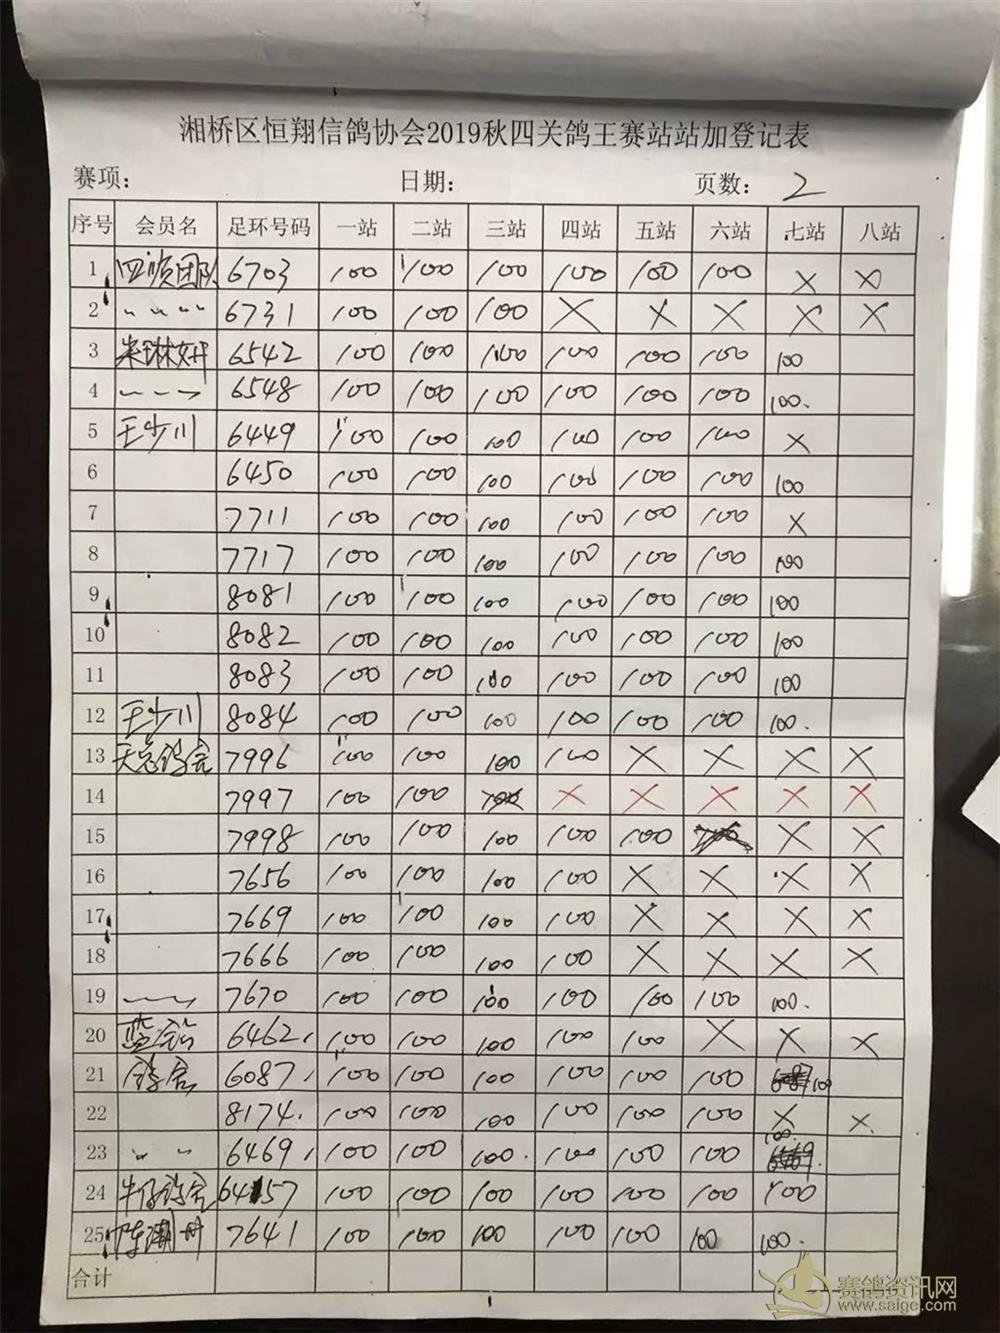 湘桥区恒翔信鸽协会2019秋四关鸽王赛站站加登记表
赛项： 日期： 页数： 2
序号 会员名 足环号码 一站 二站 三站 四站 五站 六站 七站 八站
1 团队 6703 100 100 100 100 100 100 × ×
2 〃 〃 〃 〃 6731 100 100 100 × × × × ×
3 6542 100 100 100 100 100 100 100
4 6548 100 100 100 100 100 100 100.
5 王少川 6449 100 100 100 100 100 100 ×
6 6450 100 100 100 100 100 100 100
7 7711 100 100 100 100 100 100 ×
8 7717 100 100 100 100 100 100 100
9 8081 100 100 100 100 100 100 100
10 8082 100 100 100 100 100 100 100
11 8083 100 100 100 100 100 100 100
12 王少川 8084 100 100 100 100 100 100 100.
13 7996 100 100 100 100 × × × ×
14 7997 100 100 100 × × × × ×
15 7998 100 100 100 100 100 × ×
16 7656 100 100 100 100 × × × ×
17 7669 100 100 100 100 × × × ×
18 7666 100 100 100 100 × × × ×
19 7670 100 100 100 100 100 100 100.
20 6462. 100 100 100 100 100 × × ×
21 6087. 100 100 100 100 100 100 100
22 8174. 100 100 100 100 100 100 × ×
23 〃 〃 6469. 100 100 100. 100 100 100 100. 6469.
24 6457 100 100 100 100 100 100 100
25 7641 100 100 100 100 100 100 100.
合计
赛鸽资讯网
www.saige.com